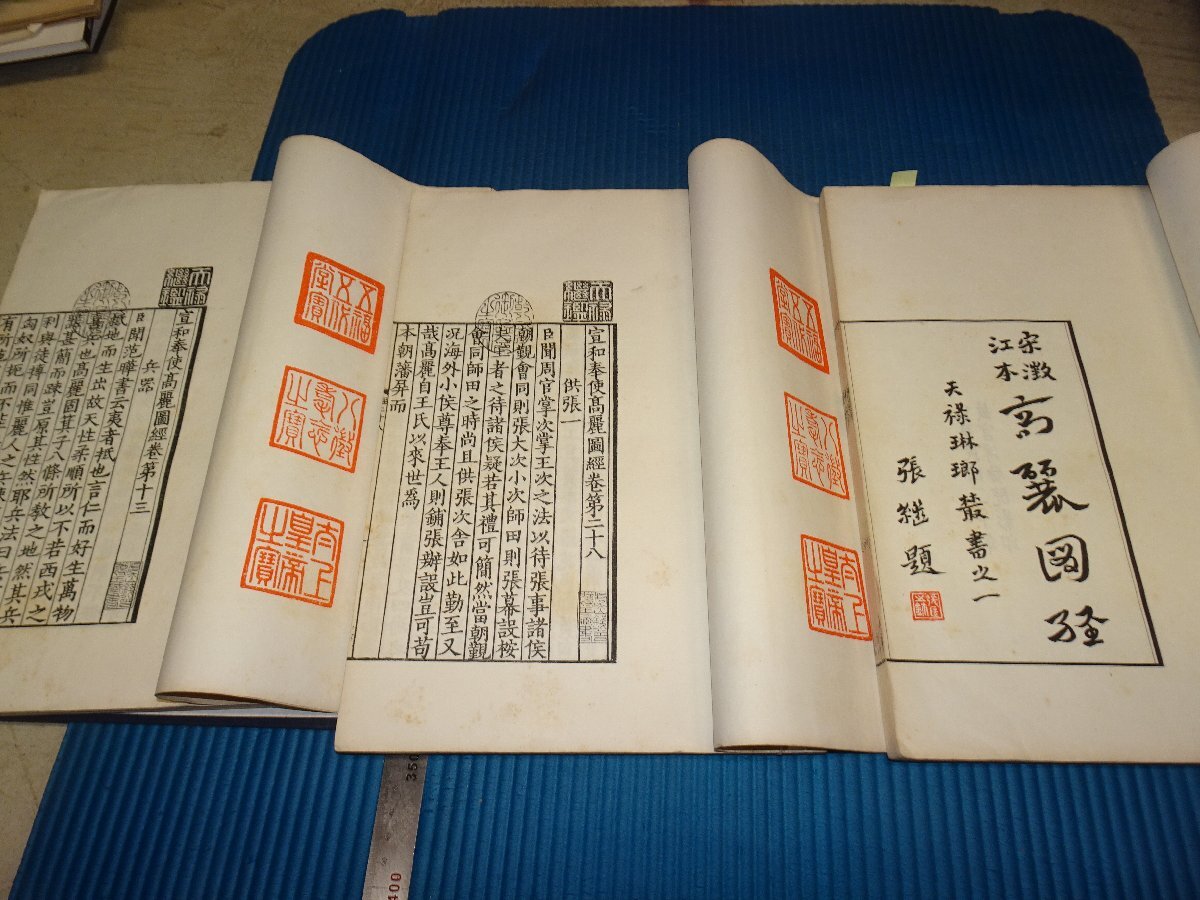 宋澂
江本
高麗圖經
天祿琳瑯叢書之一
張繼題
五福
五代
堂寶
八徵
耄念
之寶
太上
皇帝
之寶
天祿
繼鑑
宣和奉使高麗圖經卷第二十八
供張一
臣聞周官掌次掌王次之法以待張事諸侯
朝覲會同則張大次小次師田則張幕設桉
者之待諸侯疑若其禮可簡然當朝覲
會同師田之時尚且供張次舍如此勤至又
況海外小侯尊奉王人則鋪張辦設豈可苟
哉高麗自王氏以來世爲
本朝藩屏而
五福
五代
堂寶
八徵
耄念
之寶
太上
皇帝
之寶
天祿
繼鑑
宣和奉使高麗圖經卷第十三
兵器
臣聞范曄書云夷者抵也言仁而好生萬物
柢地而生出故天性柔順所以不若西戎之
喜兵也高麗固箕子八條所教之地然其兵
器甚簡而疎豈原其性然耶兵法曰
利與徒搏同惟麗人之
匈奴所扼而不能
有所
350
400